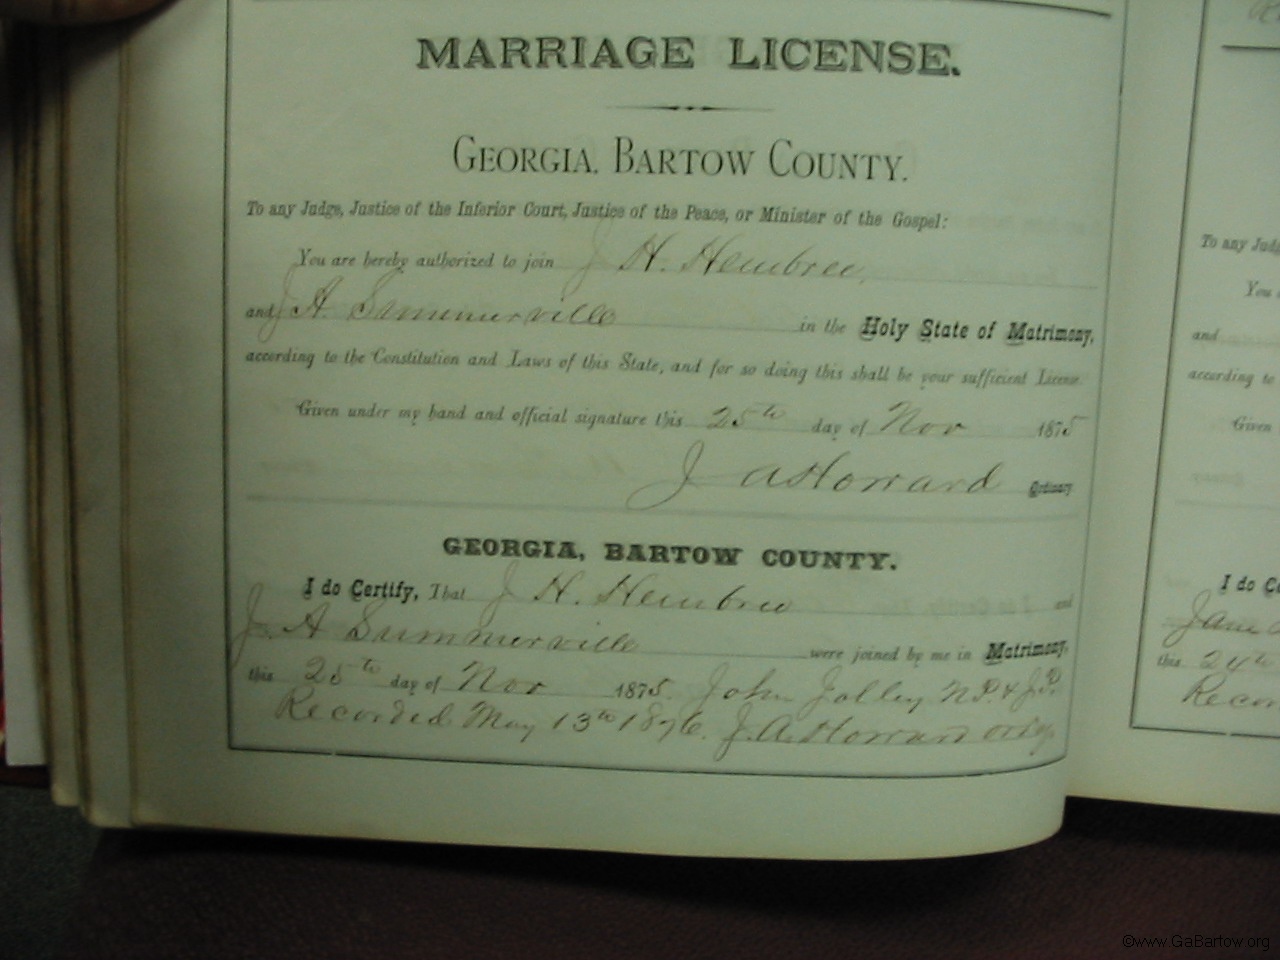 MARRIAGE LICENSE.
GEORGIA, BARTOW COUNTY.
To any Judge, Justice of the Inferior Court, Justice of the Peace, or Minister of the Gospel:
You are hereby authorized to join J H. Hembree,
and J A. Summerville in the Holy State of Matrimony,
according to the Constitution and Laws of this State, and for so doing this shall be your sufficient License.
Given under my hand and official signature this 25th day of Nov 1875
J A Howard Ordinary
GEORGIA, BARTOW COUNTY.
I do Certify, That J H. Hembree and
J. A Summerville were joined by me in Matrimony,
this 25th day of Nov 1875. John Jolley N.P. & J.P.
Recorded May 13th 1876. J. A. Howard ordy
To any Judge
You
and
according to
Given
I do Ce
Jane
this 24th
Recor
©www.GaBartow.org